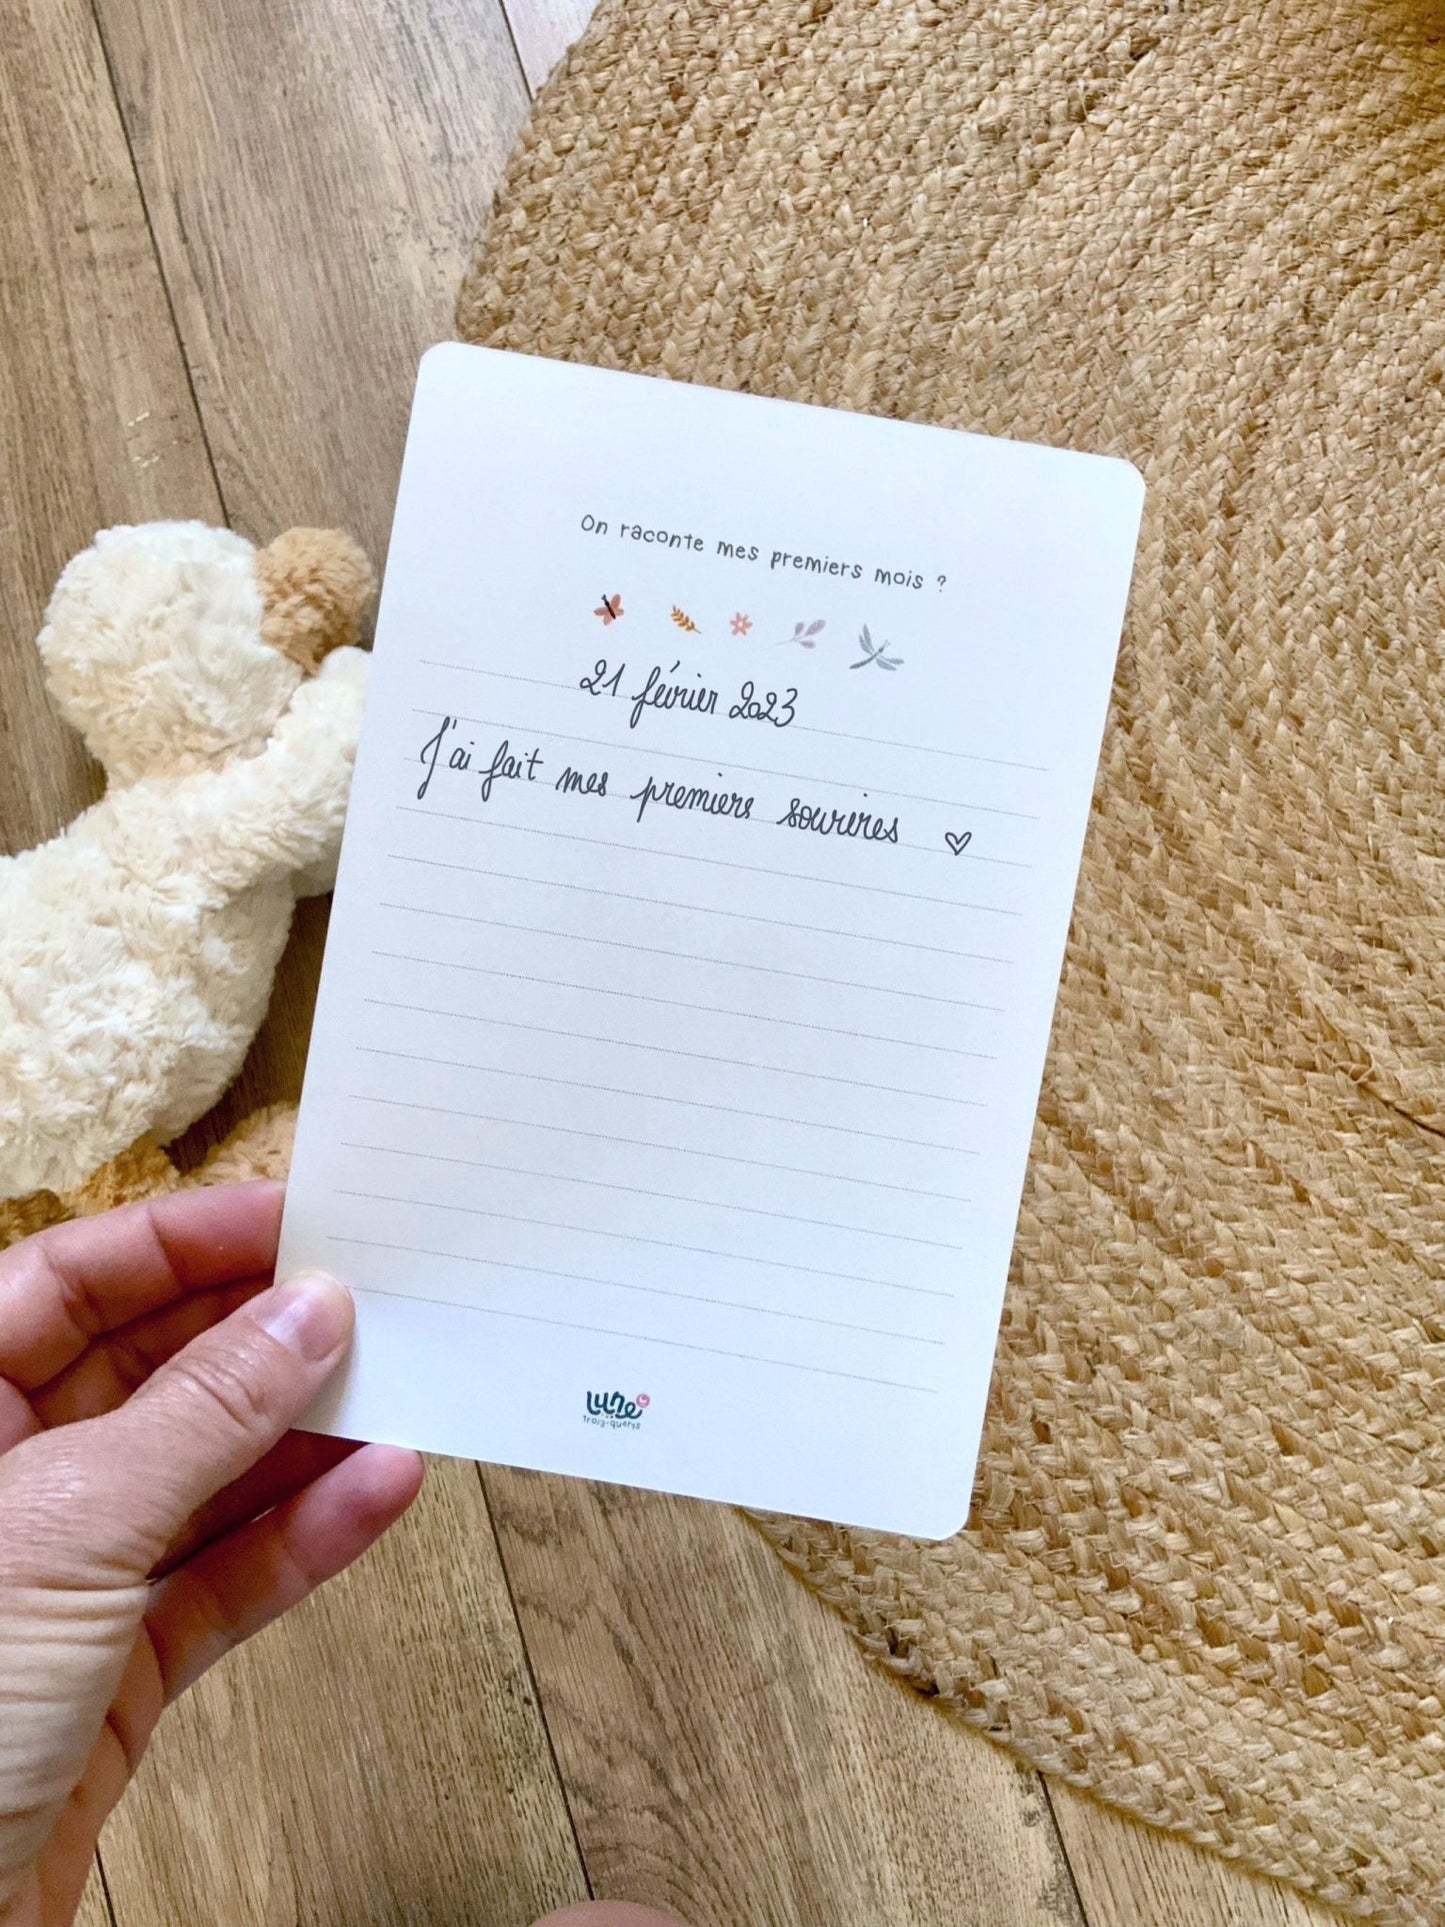 On raconte mes premiers mois ?
21 février 2023
J'ai fait mes premiers sourires ♡
lune
trois-quarts